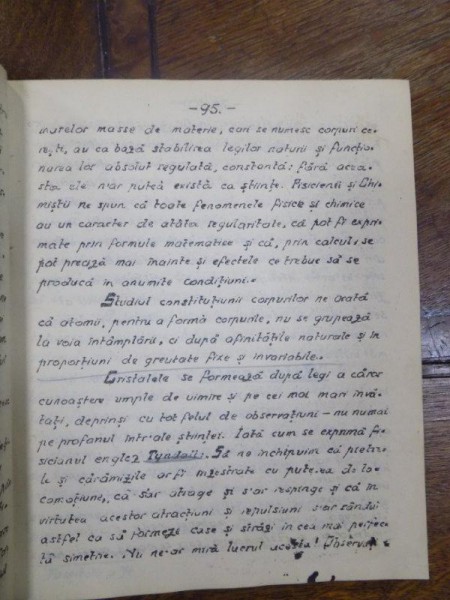 -95.-
masse de materie, cari se numesc corpuri ce-
rești, au ca bază stabilirea legilor naturii și funcțio-
narea lor absolut regulată, constantă; fără acea-
sta ele n'ar putea există ca științe. Fizicienii și Chi-
miștii ne spun că toate fenomenele fizice și chimice
au un caracter de atâta regularitate, că pot fi expri-
mate prin formule matematice și că, prin calcul, se
pot preciză mai înainte și efectele ce trebue să se
producă in anumite condițiuni.-
Studiul constituțiunii corpurilor ne arată
că atomii, pentru a formă corpurile, nu se grupează
la voia întâmplării, ci după afinitățile naturale și in
proporțiuni de greutate fixe și invariabile.-
Cristalele se formează după legi a căror
cunoaștere umple de uimire și pe cei mai mari învă-
țați, deprinși cu tot felul de observațiuni - nu numai
pe profanul într'ale științei. Iată cum se exprimă fi-
sicianul englez Tyndall: Să ne închipuim că pietre-
le și cărămizile ar fi înzestrate cu puterea de lo-
comoțiune, că s'ar atrage și s'ar respinge și că in
virtutea acestor atracțiuni și repulsiuni s'ar rândui
astfel ca să formeze case și străzi in cea mai perfec-
tă simetrie. Nu ne-ar miră lucrul acesta?